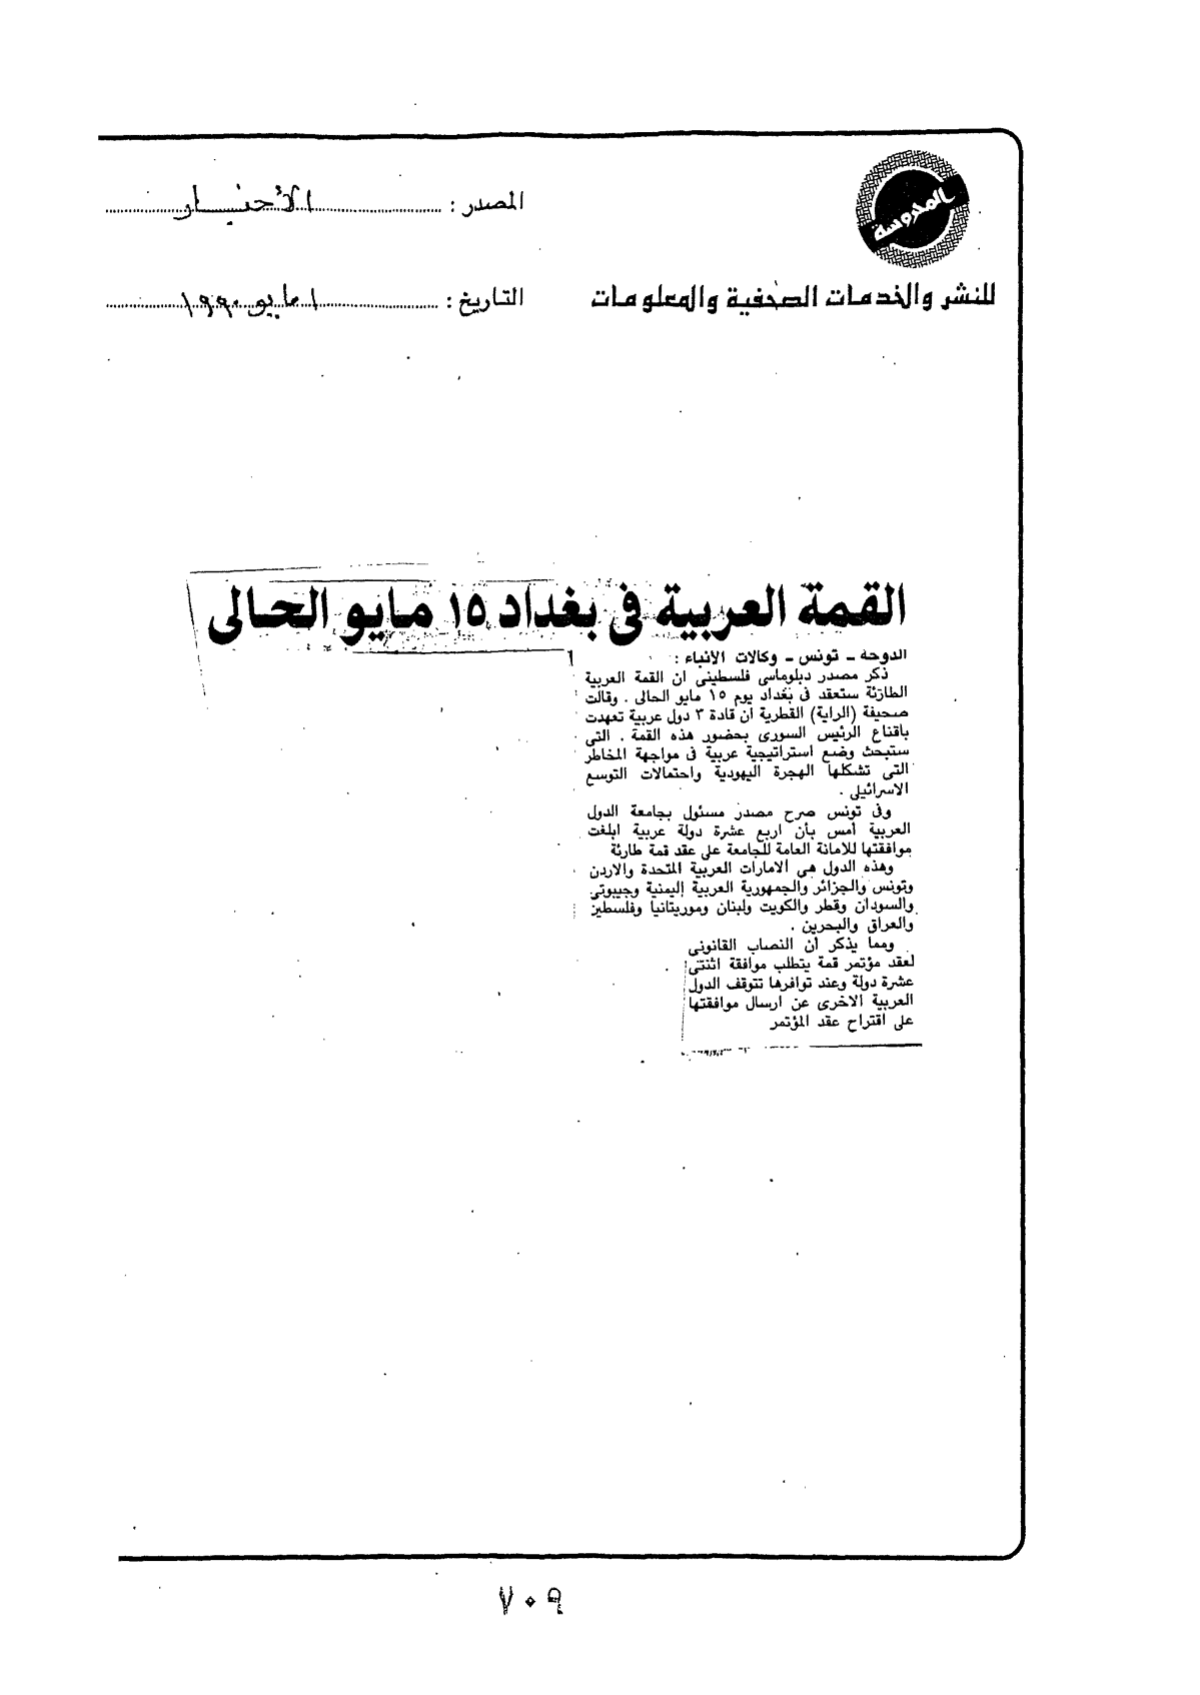 المحروسة
للنشر والخدمات الصحفية والمعلومات
المصدر : الأخبار
التاريخ : ١ مايو ١٩٩٠
القمة العربية فى بغداد ١٥ مايو الحالى
الدوحة ـ تونس ـ وكالات الانباء :
ذكر مصدر دبلوماسى فلسطينى ان القمة العربية
الطارئة ستعقد فى بغداد يوم ١٥ مايو الحالى . وقالت
صحيفة (الراية) القطرية ان قادة ٣ دول عربية تعهدت
باقناع الرئيس السورى بحضور هذه القمة . التى
ستبحث وضع استراتيجية عربية فى مواجهة المخاطر
التى تشكلها الهجرة اليهودية واحتمالات التوسع
الاسرائيلى .
وفى تونس صرح مصدر مسئول بجامعة الدول
العربية أمس بأن اربع عشرة دولة عربية ابلغت
موافقتها للامانة العامة للجامعة على عقد قمة طارئة
وهذه الدول هى الامارات العربية المتحدة والاردن
وتونس والجزائر والجمهورية العربية اليمنية وجيبوتى
والسودان وقطر والكويت ولبنان وموريتانيا وفلسطين
والعراق والبحرين .
ومما يذكر ان النصاب القانونى
لعقد مؤتمر قمة يتطلب موافقة اثنتى
عشرة دولة وعند توافرها تتوقف الدول
العربية الاخرى عن ارسال موافقتها
على اقتراح عقد المؤتمر
٧٠٩